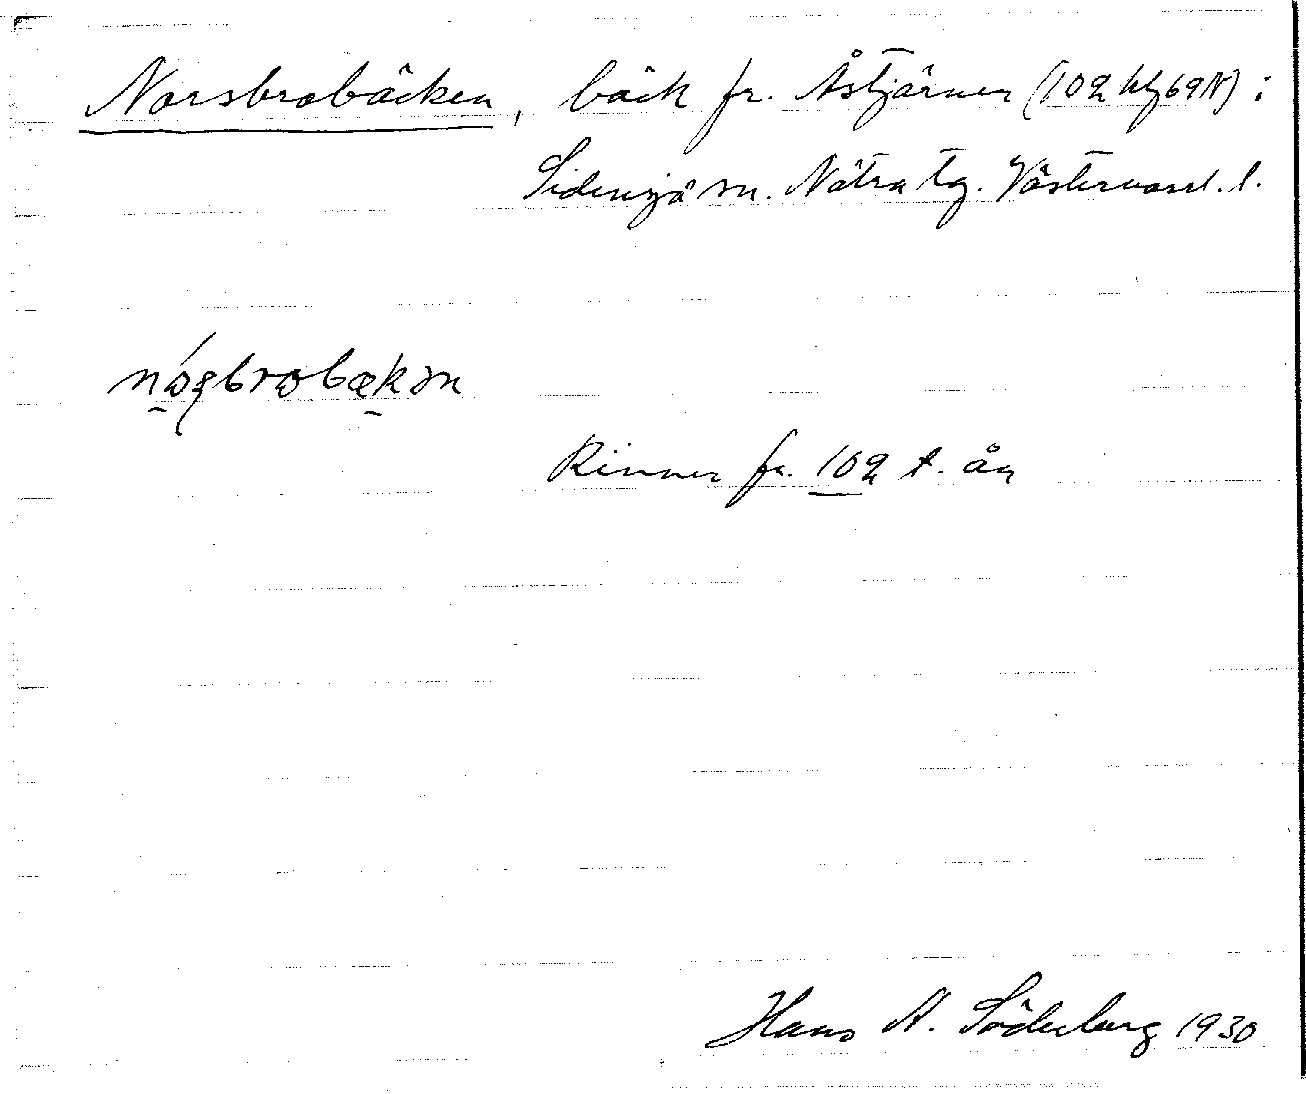 Norsbrobäcken, bäck fr. Åstjärnen (102 kfj69N) i
Sidensjö sn. Nätra tg. Västernorrl. l.
Rinner fr. 102 t. ån
Hans A. Söderberg 1930